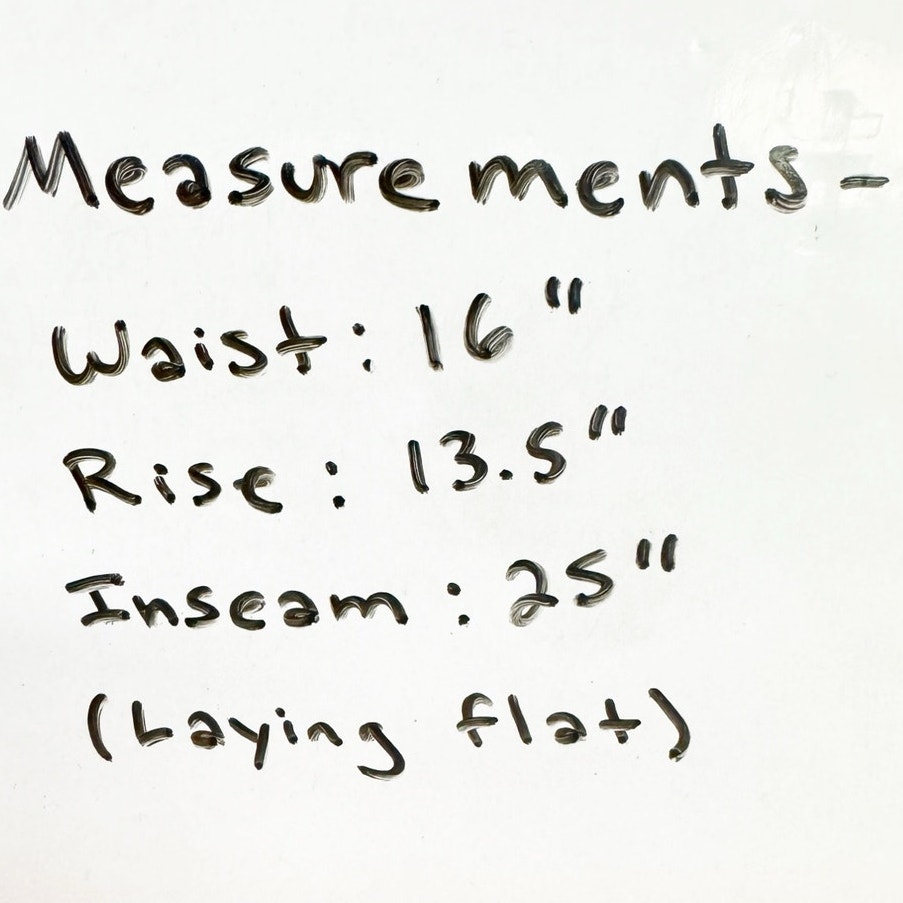 Measurements-
Waist: 16"
Rise: 13.5"
Inseam: 25"
(Laying flat)